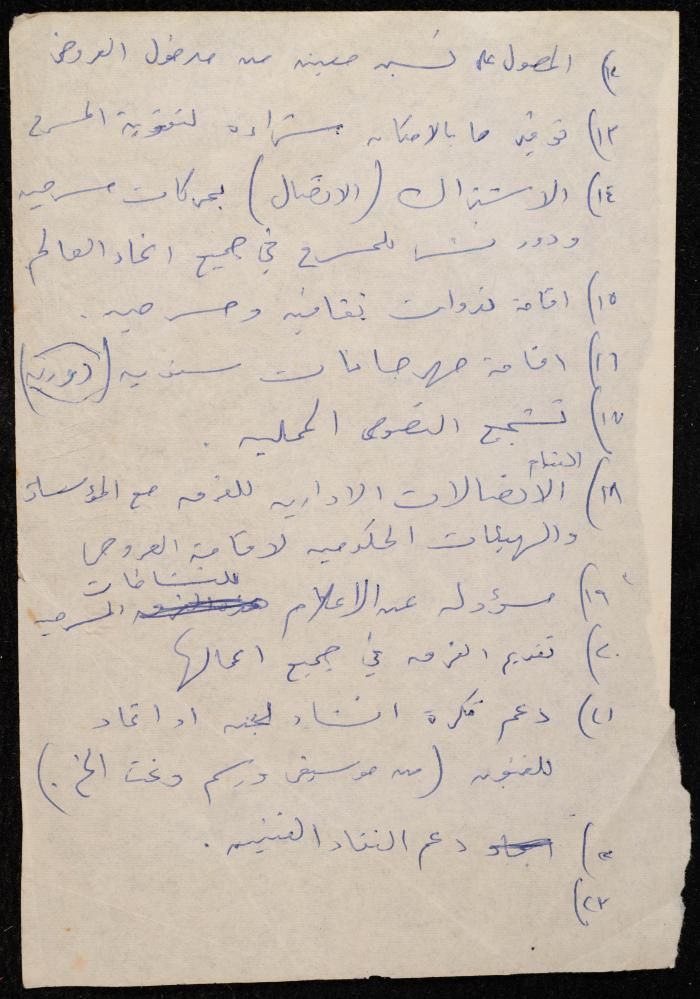 ١٢) الحصول على نسبه معينه من مدخول العروض
١٣) توفير ما بالامكان شراءه لتقوية المسرح
١٤) الاشتراك (الاتصال) بحركات مسرحيه
ودور للمسرح في جميع انحاء العالم
١٥) اقامة ندوات ثقافيه ومسرحيه.
١٦) اقامة مهرجانات سنويه (دوريه)
١٧) تشجيع النصوص المحليه.
القيام
١٨) الاتصالات الاداريه للفرقه مع المؤسسات
والهيئات الحكوميه لاقامة العروض
للنشاطات
١٩) مسؤوله عن الاعلام المسرحيه
٢٠) تقديم الفرقه في جميع اعمالها
٢١) دعم فكرة انشاء لجنه او اتحاد
للفنون (من موسيقى ورسم ونحت الخ.)
٢٢) دعم النقاد الفنيين.
٢٣)